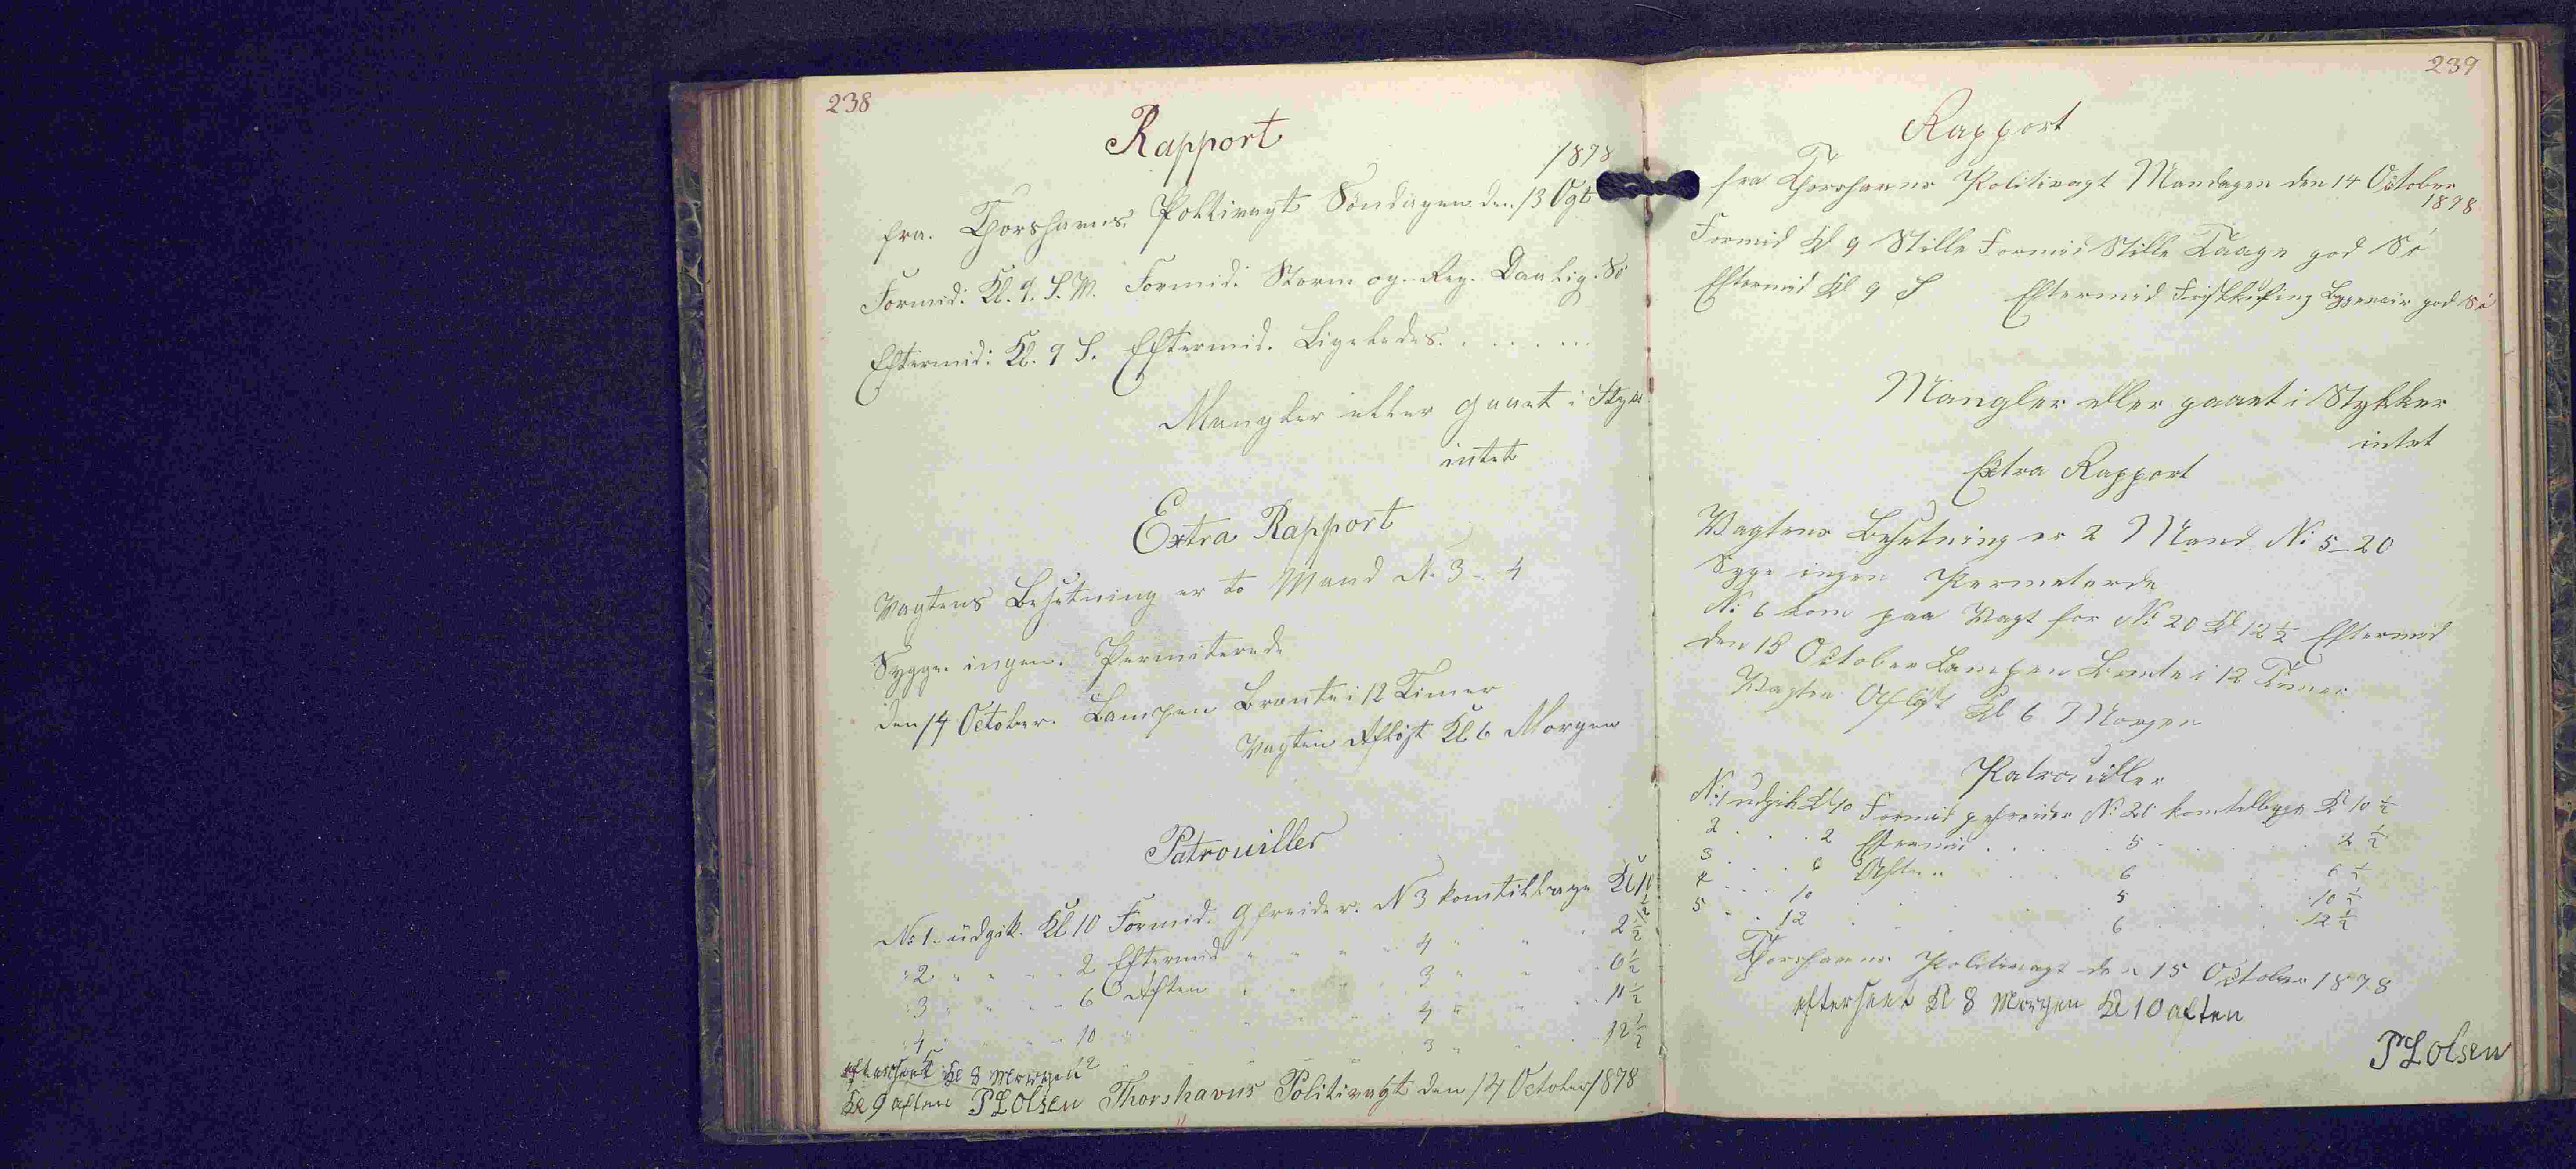 238
Rapport
1878
fra. Thorshavns. Politivagt Søndagen den 13 Ogt
Formid: Kl. 9. S.W. Formid. Storm og Reg. Daarlig. Sö
Eftermid: Kl. 9 S. Eftermid. Ligeledes. . . . . . .
Mangler eller gaaet i Styk
intet
Extra Rapport
Vagtens Besetning er to Mand N. 3 - 4
Sygge ingen. Permiterede
den 14 October. Lampen Brænte i 12 Timer
Vagten Afløst Kl 6 Morgen
Patrouiller
No 1. udgik. Kl 10 Formid. Gefreider. N 3 kom tilbage Kl 10 1/2
" 2 " " " 2 Eftermid " " " 4 " " 2 1/2
" 3 " " " 6 Aften " " " 3 " " 6 1/2
" 4 " " " 10 " " " " 4 " " 11 1/2
5 " " 12 " " " 3 " " 12 1/2
efterseet Kl 8 Morgen
Kl 9 aften P L Olsen Thorshavns Politivagt den 14 October 1878
239
Rapport
fra Thorshavns Politivagt Mandagen den 14 October
1878
Formid Kl 9 Stille Formid Stille Taage god Sö
Eftermid Kl 9 S Eftermid god Sö
Mangler eller gaaet i Stykker
intet
Extra Rapport
Vagtens Besetning er 2 Mand N: 5-20
Syge ingen Permeterde
N: 6 kom paa Vagt for N: 20 Kl 12 1/2 Eftermid
den 15 October Lampen Brænte i 12 Timer
Vagten Afløst Kl 6 Morgen
Patrouiller
N: 1 udgik Kl 10 Formid gefreider N: 20 kom tilbage Kl 10 1/2
2 . . . . 2 Eftermid . . . . 5 . . . . 2 1/2
3 . . . . 6 Aften . . . . 6 . . . . 6 1/2
4 . . . . 10 . . . . 5 . . . . 10 1/2
5 . . . . 12 . . . . 6 . . . . 12 1/2
Thorshavns Politivagt den 15 October 1878
efterseet Kl 8 Morgen Kl 10 aften
P L Olsen